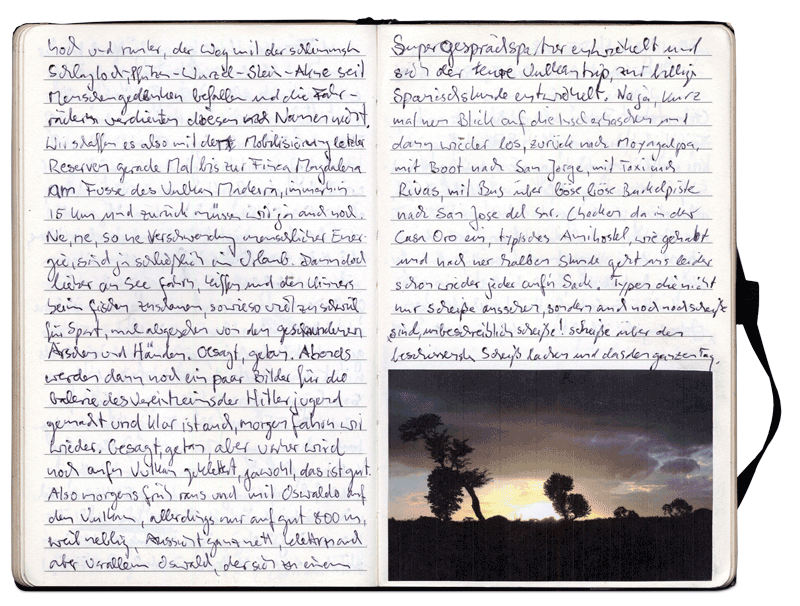 hoch und runter, der Weg mit der schlimmsten
Schlagloch-Pfützen-Wurzel-Stein-Akne seit
Menschengedenken befallen und die Fahr-
räder verdienten diesen Namen nicht.
Wir schaffen es also mit der Mobilisierung letzter
Reserven gerade Mal bis zur Finca Magdalena
am Fusse des Vulkan Maderas, immerhin
15 km und zurück müssen wir ja auch noch.
Ne, ne, so ne Verschwendung menschlicher Ener-
gie, sind ja schließlich im Urlaub. Dann doch
lieber an See fahrn, kiffen und den
beim fischen zuschauen, sowieso viel zu schwül
für Sport, mal abgesehen von den geschundenen
Ärschen und Händen. Gesagt, getan. Abends
werden dann noch ein paar Bilder für die
Galerie des Vereinsheims der Hitlerjugend
gemacht und klar ist auch, morgen fahrn wir
wieder. Gesagt, getan, aber vorher wird
noch aufn Vulkan geklettert, jawohl, das ist gut.
Also morgens früh raus und mit Oswaldo auf
den Vulkan, allerdings nur auf gut 800 m,
weil neblig, Aussicht ganz nett,
aber vorallem Oswald, der sich zu einem
Supergesprächspartner entwickelt und
sich der teure Vulkantrip, zur billigen
Spanischstunde entwickelt. Naja, kurz
mal nen Blick auf die und
dann wieder los, zurück nach Moyogalpa,
mit Boot nach San Jorge, mit Taxi nach
Rivas, mit Bus über böse, böse Buckelpiste
nach San Jose del Sur. Checken da in der
Casa Oro ein, typisches Amihostel, wie gehabt
und nach ner halben Stunde geht uns leider
schon wieder jeder aufn Sack. Typen die nicht
nur scheiße aussehen, sondern auch noch scheiße
sind, unbeschreiblich scheiße! scheiße über den
Scheiß lachen und das den ganzen Tag.